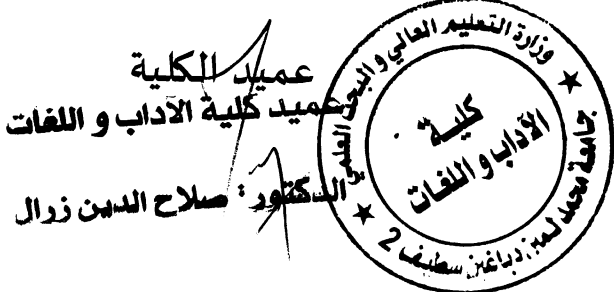 عميد الكلية
عميد كلية الآداب و اللغات
الدكتور : صلاح الدين زرال
وزارة التعليم العالي و البحث العلمي
جامعة محمد لمين دباغين سطيف 2
كليـة
الآداب و اللغات